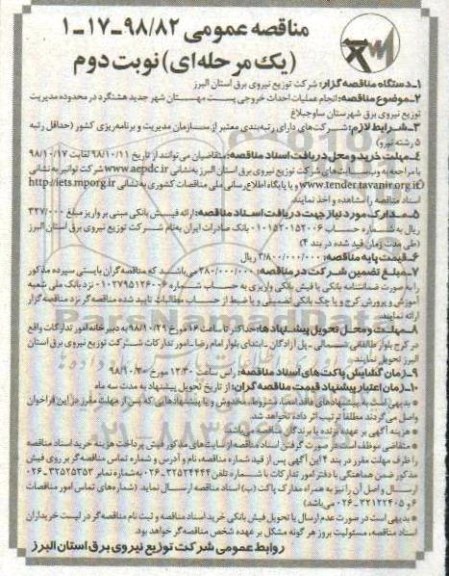 مناقصه عمومی ۹۸/۸۲-۱۷-۱
(یک مرحله‌ای) نوبت دوم
۱-دستگاه مناقصه گزار: شرکت توزیع نیروی برق استان البرز
۲-موضوع مناقصه: انجام عملیات احداث خروجی پست مهستان شهر جدید هشتگرد در محدوده مدیریت
توزیع نیروی برق شهرستان ساوجبلاغ
۳-شرایط لازم: شرکت‌های دارای رتبه‌بندی معتبر از سازمان مدیریت و برنامه‌ریزی کشور (حداقل رتبه
۵ رشته نیرو)
۴-مهلت خرید و محل دریافت اسناد مناقصه: متقاضیان می‌توانند از تاریخ ۹۸/۱۰/۱۱ لغایت ۹۸/۱۰/۱۷
با مراجعه به وب سایت‌های شرکت توزیع نیروی برق استان البرز به نشانی www.aepdc.ir شرکت توانیر به نشانی
www.tender.tavanir.org.ir و یا پایگاه اطلاع رسانی ملی مناقصات کشوری به نشانی http://iets.mporg.ir
اسناد مناقصه را مشاهده و اخذ نمایند
۵-مدارک مورد نیاز جهت دریافت اسناد مناقصه: ارائه فیش بانکی مبنی بر واریز مبلغ ۳۲۷/۰۰۰
ریال به شماره حساب ۰۱۰۱۵۲۰۱۵۲۰۰۶ بانک صادرات ایران به نام شرکت توزیع نیروی برق استان البرز
(طی مدت زمان قید شده در بند ۴)
۶-قیمت پایه مناقصه: ۳/۸۰۰/۰۰۰/۰۰۰ ریال
۷-مبلغ تضمین شرکت در مناقصه: ۲۸۰/۰۰۰/۰۰۰ می‌باشد که مناقصه‌گران بایستی سپرده مذکور
را به صورت ضمانتنامه بانکی یا فیش بانکی واریزی به حساب شماره ۰۱۰۲۷۹۵۱۲۶۰۰۶ نزد بانک ملی شعبه
آموزش و پرورش کرج و یا چک بانکی تضمینی و یا ضبط از حساب مطالبات تایید شده مناقصه‌گر نزد مناقصه گزار
ارائه نمایند.
۸-مهلت و محل تحویل پیشنهادها: حداکثر تا ساعت ۱۴ مورخ ۹۸/۱۰/۲۹ به دبیرخانه امور تدارکات واقع
در کرج بلوار طالقانی شمالی-پل آزادگان-ابتدای بلوار امام رضا-امور تدارکات شرکت توزیع نیروی برق استان
البرز تحویل نمایند.
۹-زمان گشایش پاکت های اسناد مناقصه: راس ساعت ۱۲:۳۰ مورخ ۹۸/۱۰/۳۰
۱۰-زمان اعتبار پیشنهاد قیمت مناقصه گران: از تاریخ تحویل پیشنهاد به مدت سه ماه
* بدیهی است به پیشنهادهای فاقد امضا، مشروط، مخدوش و یا پیشنهادهایی که پس از مهلت مقرر در این فراخوان
واصل می‌گردند مطلقا ترتیب اثر داده نخواهد شد.
* هزینه آگهی بر عهده برنده یا برندگان مناقصه می‌باشد.
* متقاضی موظف است در صورت گرفتن اسناد مناقصه از سایت‌های مذکور فیش پرداخت هزینه خرید اسناد مناقصه
را ظرف مهلت مقرر در بند ۴ این آگهی پس از قید شماره مناقصه، نام و آدرس و شماره تماس مناقصه گر بر روی فیش
مذکور ضمن هماهنگی با دفتر امور تدارکات با شماره تلفن ۳۲۵۲۴۴۴۴-۰۲۶ به شماره نمابر ۳۲۵۲۵۳۵۳-۰۲۶
ارسال و اصل آن را نیز به همراه مدارک پاکت (ب) اسناد مناقصه ارسال نماید (شماره‌های تماس امور مناقصات
۶ و ۳۲۱۲۲۴۰۵-۰۲۶ می‌باشد)
* بدیهی است در صورت عدم ارسال یا تحویل فیش بانکی خرید اسناد مناقصه و ثبت نام مناقصه‌گر در لیست خریداران
اسناد مناقصه، مسئولیت بروز هر گونه مشکل بر عهده شخص مناقصه‌گر خواهد بود.
روابط عمومی شرکت توزیع نیروی برق استان البرز